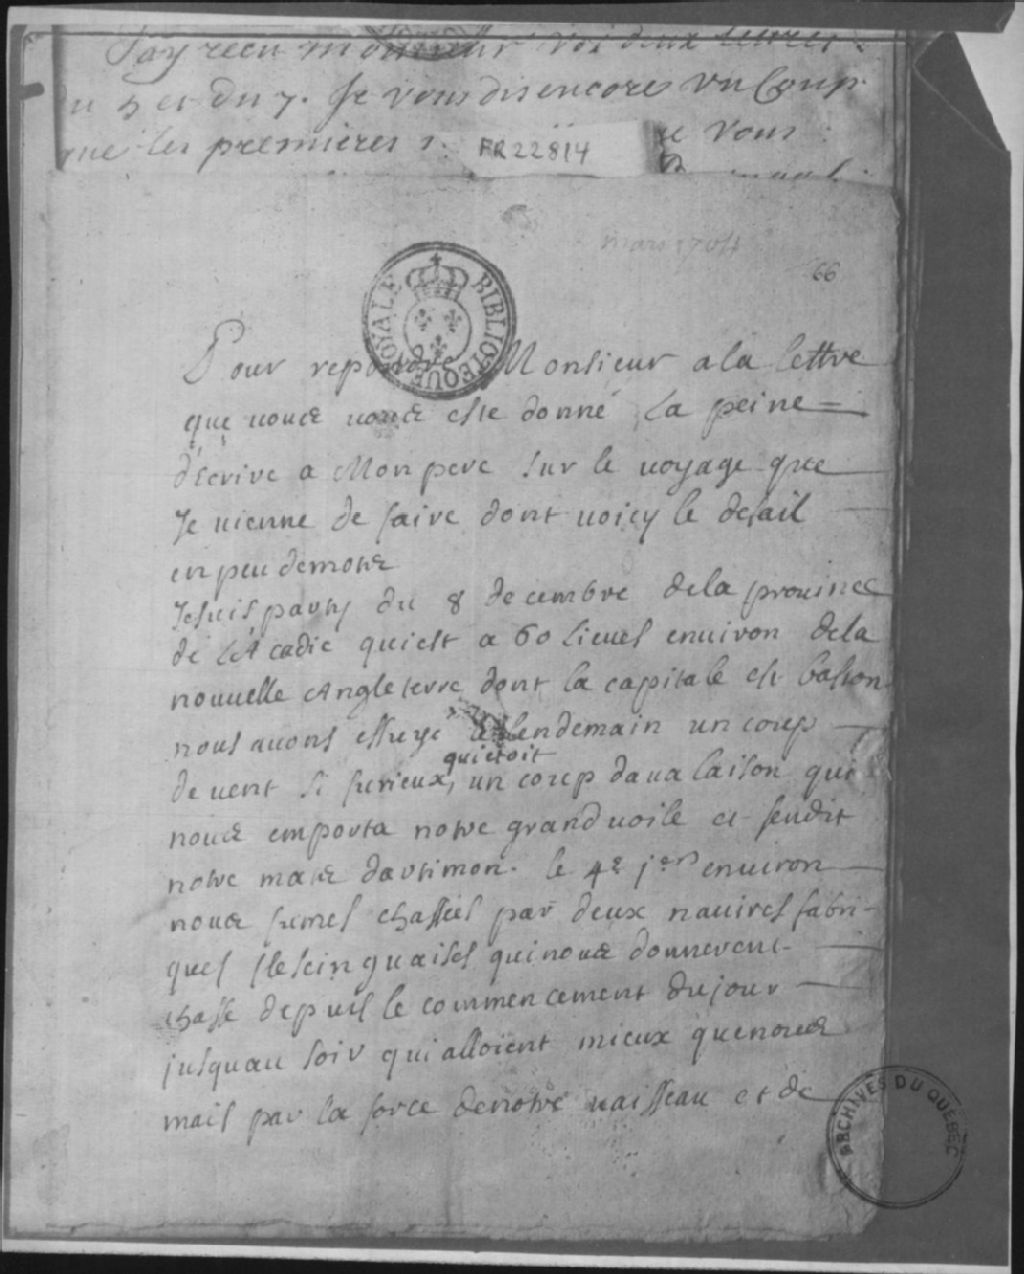 Jay receu monsieur vos deux lettres
du 5 et du 7. Je vous dis encores un Coup
que les premieres
FR 22814
vous
mars 1704
66
BIBLIOTEQUE ROYALE
Pour repondre Monsieur a la lettre
que vous vous este donné la peine
d'Ecrire a Mon pere sur le voyage que
Je vienne de faire dont voicy le detail
en peu de mots
Je suis party du 8 decembre de la province
de l'Acadie qui est a 60 lieues environ de la
nouvelle Angleterre dont la capitale est baston
nous avons essuyé le lendemain un coup
qui etoit
de vent si furieux, un coup davalaison qui
nous emporta notre grand voile et fendit
notre mats dartimon. le 4e jour environ
nous fumes chassees par deux navires fabri-
ques flesinguaises qui nous donnerent
chasse depuis le commencement du jour
jusquau soir qui alloient mieux que nous
mais par la force de notre vaisseau et de
ARCHIVES DU QUÉBEC